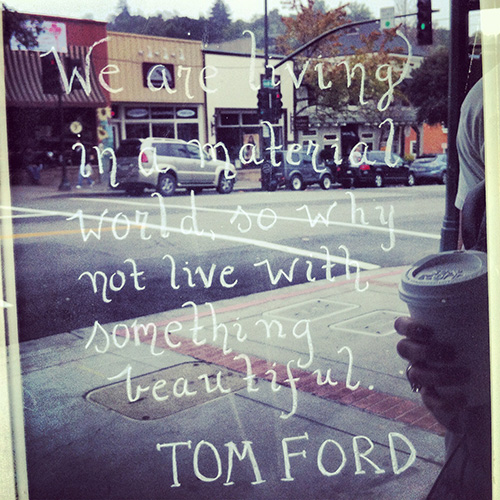 We are living
in a material
world, so why
not live with
something
beautiful.
TOM FORD